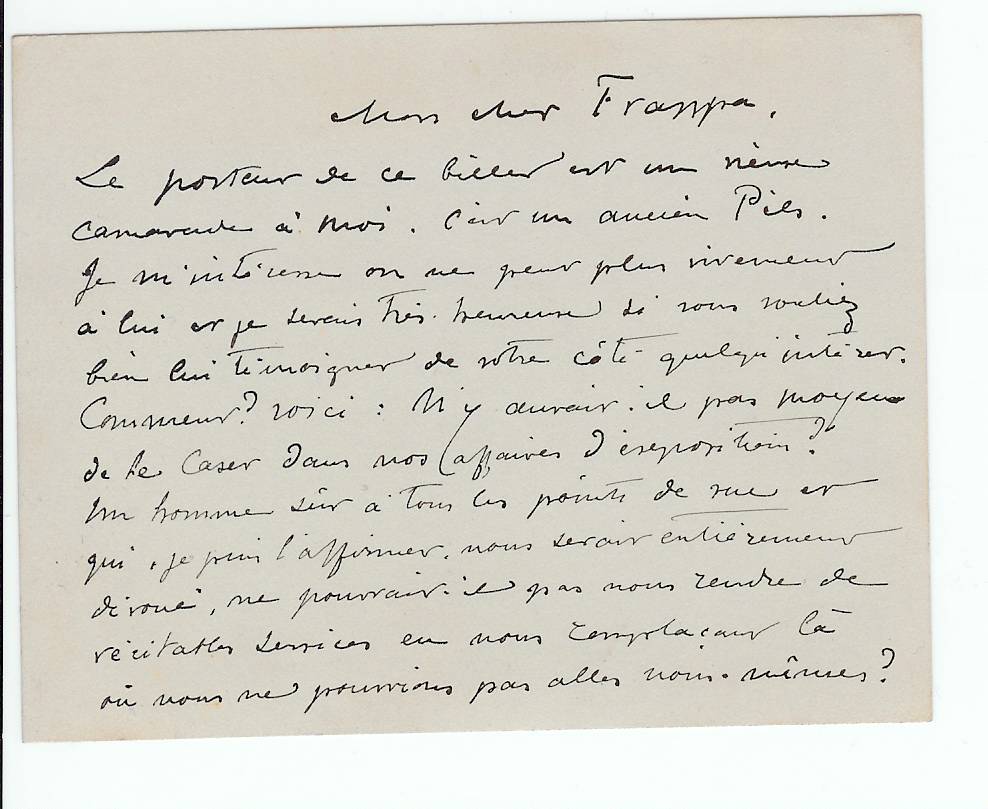 Mon cher Frappa,
Le porteur de ce billet est un vieux
camarade à moi. C'est un ancien Pils.
Je m'intéresse on ne peut plus vivement
à lui et je serais très heureux si vous vouliez
bien lui témoigner de votre côté quelqu'intérêt.
Comment? voici : N'y aurait-il pas moyen
de le caser dans nos affaires d'exposition?
Un homme sûr à tous les points de vue et
qui, je puis l'affirmer, nous serait entièrement
dévoué, ne pourrait-il pas nous rendre de
véritables services en nous remplaçant là
où nous ne pourrions pas aller nous-mêmes?